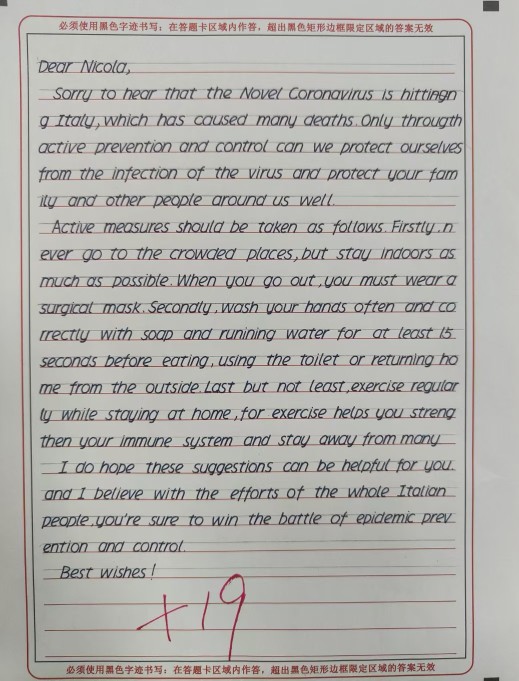 必须使用黑色字迹书写：在答题卡区域内作答，超出黑色矩形边框限定区域的答案无效
Dear Nicola,
Sorry to hear that the Novel Coronavirus is hittingn
g Italy, which has caused many deaths. Only througth
active prevention and control can we protect ourselves
from the infection of the virus and protect your fam
ily and other people around us well.
Active measures should be taken as follows. Firstly, n
ever go to the crowded places, but stay indoors as
much as possible. When you go out, you must wear a
surgical mask. Secondly, wash your hands often and co
rrectly with soap and runining water for at least 15
seconds before eating, using the toilet or returning ho
me from the outside. Last but not least, exercise regular
ly while staying at home, for exercise helps you streng
then your immune system and stay away from many
I do hope these suggestions can be helpful for you.
and I believe with the efforts of the whole Italian
people, you're sure to win the battle of epidemic prev
ention and control.
Best wishes!
+19
必须使用黑色字迹书写：在答题卡区域内作答，超出黑色矩形边框限定区域的答案无效